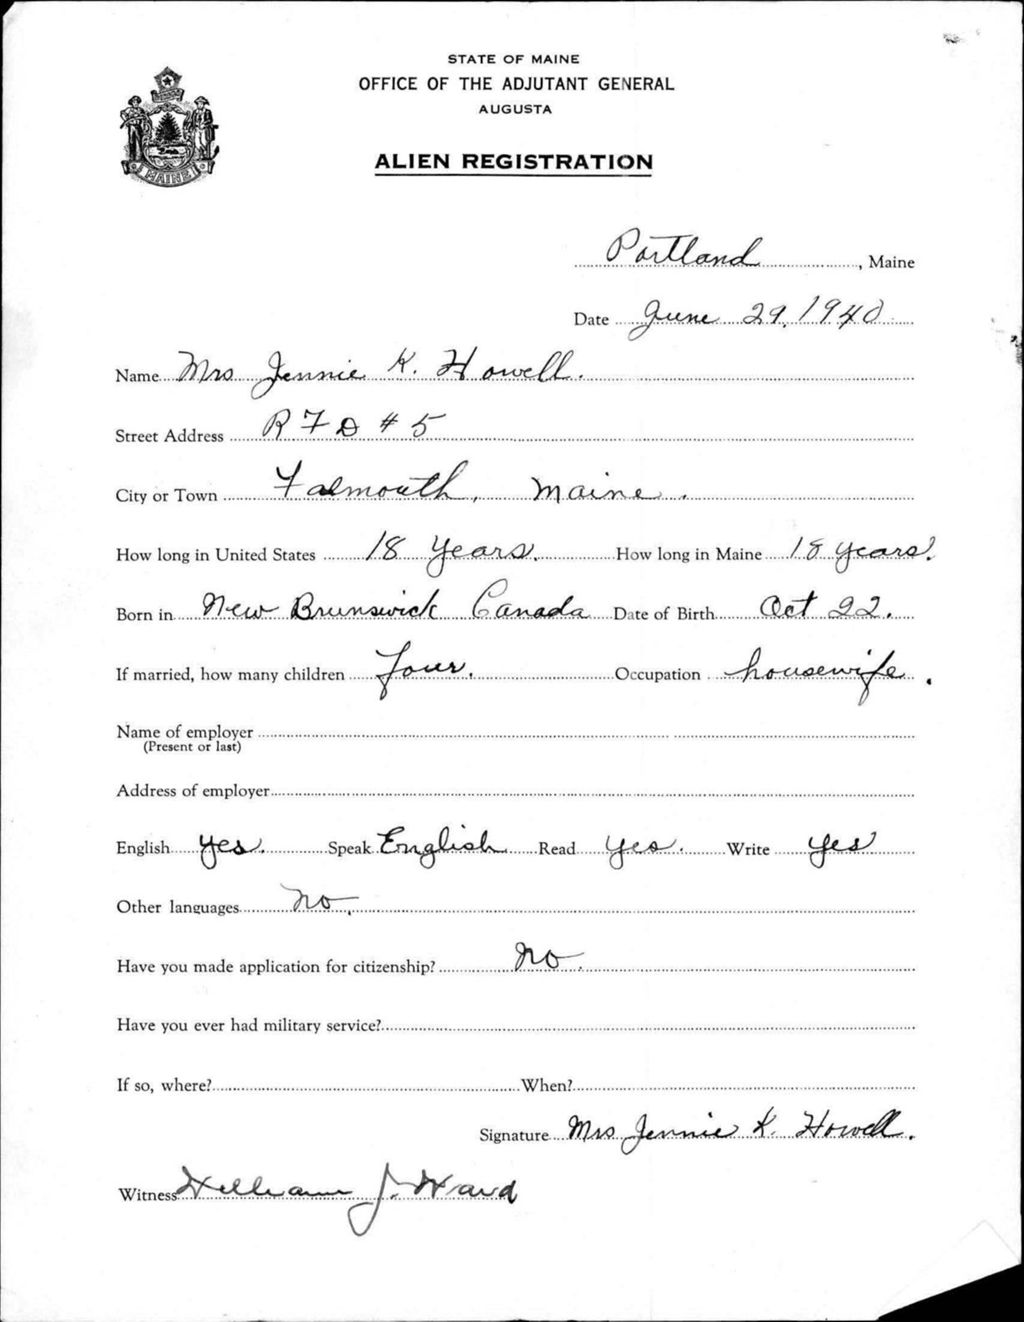 STATE OF MAINE
OFFICE OF THE ADJUTANT GENERAL
AUGUSTA
ALIEN REGISTRATION
MAINE
Portland, Maine
Date June 29, 1940
Name Mrs Jennie K. Howell.
Street Address R F D # 5
City or Town Falmouth, Maine.
How long in United States 18 Years. How long in Maine 18 years.
Born in New Brunswick Canada Date of Birth Oct 22.
If married, how many children four. Occupation housewife.
Name of employer
(Present or last)
Address of employer
English Yes. Speak English Read Yes. Write Yes
Other languages no.
Have you made application for citizenship? no.
Have you ever had military service?
If so, where? When?
Signature Mrs Jennie K. Howell.
Witness William J. Ward